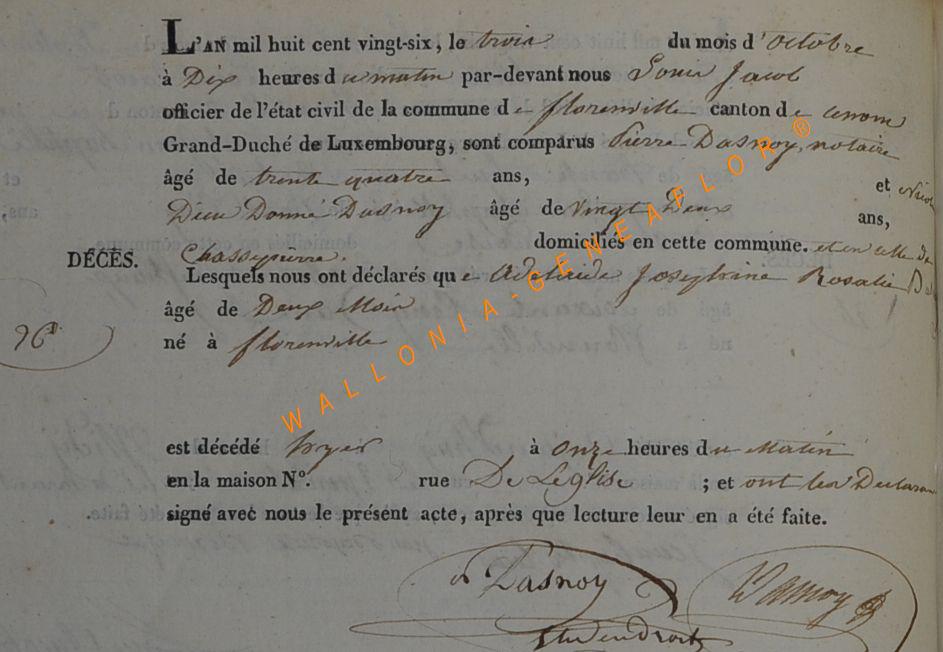 L'AN mil huit cent vingt-six, le trois du mois d'octobre
à Dix heures du matin par-devant nous Louis Jacob
officier de l'état civil de la commune de florenville canton de
Grand-Duché de Luxembourg, sont comparus Pierre Dasnoy, notaire
âgé de trente quatre ans, et
Dieu Donné Dasnoy âgé de vingt Deux ans,
domiciliés en cette commune. et en celle de
DÉCÈS. Chassepierre.
Lesquels nous ont déclarés que Adelaide Josephine Rosalie
âgé de Deux Mois
96
né à florenville
est décédé hyer à onze heures du Matin
en la maison N°. rue De Leglise ; et ont les Declarans
signé avec nous le présent acte, après que lecture leur en a été faite.
Dasnoy Dasnoy
Etud en droit
WALLONIA-GENEAFLOR ®